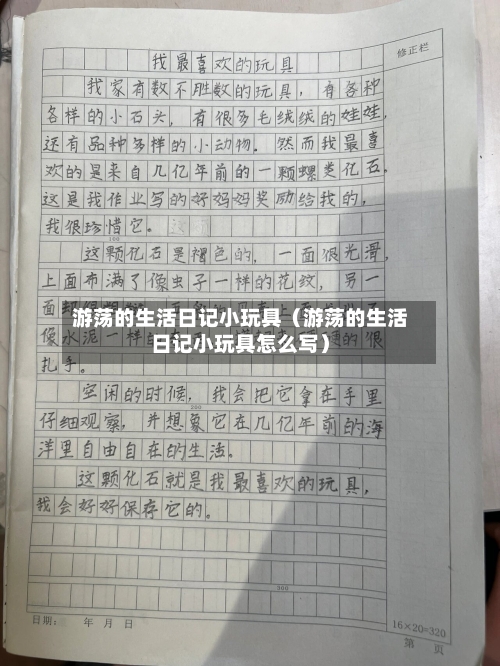 我最喜欢的玩具
修正栏
我家有数不胜数的玩具,有各种
各样的小石头,有很多毛绒绒的娃娃,
还有品种多样的小动物。然而我最喜
欢的是来自几亿年前的一颗螺类化石。
这是我作业写的好妈妈奖励给我的,
我很珍惜它。
100
这颗化石是褐色的,一面很光滑,
上面布满了像虫子一样的花纹,另一
面
游荡的生活日记小玩具(游荡的生活
日记小玩具怎么写)
像水泥一样的
的很
扎手。
空闲的时候,我会把它拿在手里
200
仔细观察,并想象它在几亿年前的海
洋里自由自在的生活。
这颗化石就是我最喜欢的玩具,
我会好好保存它的。
300
日期: 年 月 日
16×20=320
第 页